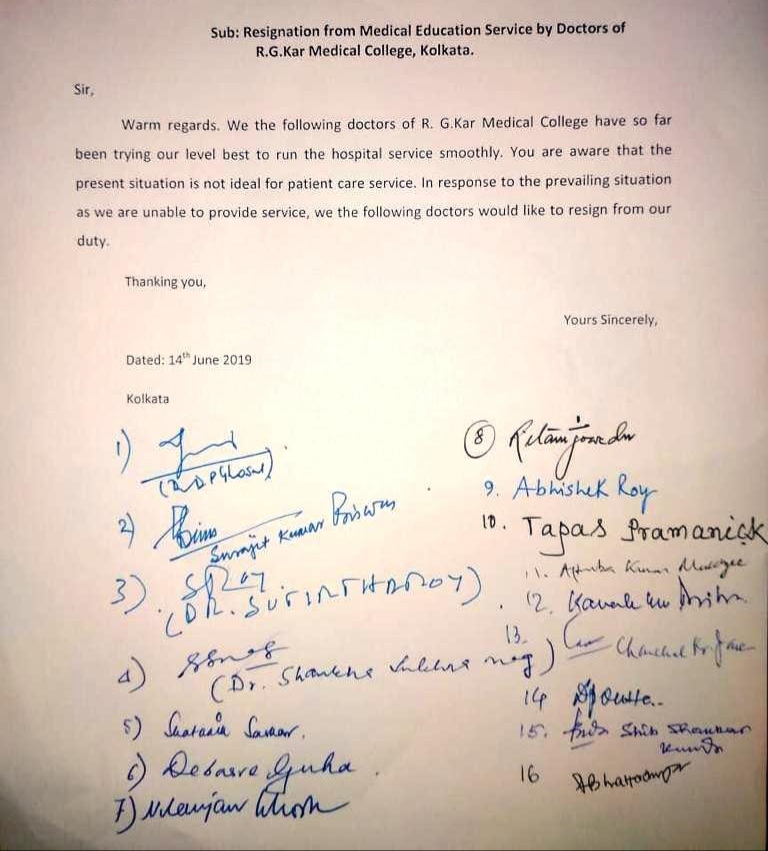 Sub: Resignation from Medical Education Service by Doctors of
R.G.Kar Medical College, Kolkata.
Sir,
Warm regards. We the following doctors of R. G.Kar Medical College have so far
been trying our level best to run the hospital service smoothly. You are aware that the
present situation is not ideal for patient care service. In response to the prevailing situation
as we are unable to provide service, we the following doctors would like to resign from our
duty.
Thanking you,
Yours Sincerely,
Dated: 14th June 2019
Kolkata
1)
2)
Surajit Kumar Biswas
3). SRoy
(DR.
4)
(Dr.
5)
6) Guha
7) Ghosh
8
9. Abhishek Roy
10. Tapas Pramanick
11. Kumar
12.
13.
14
15. Shib Shankar
Kundu
16